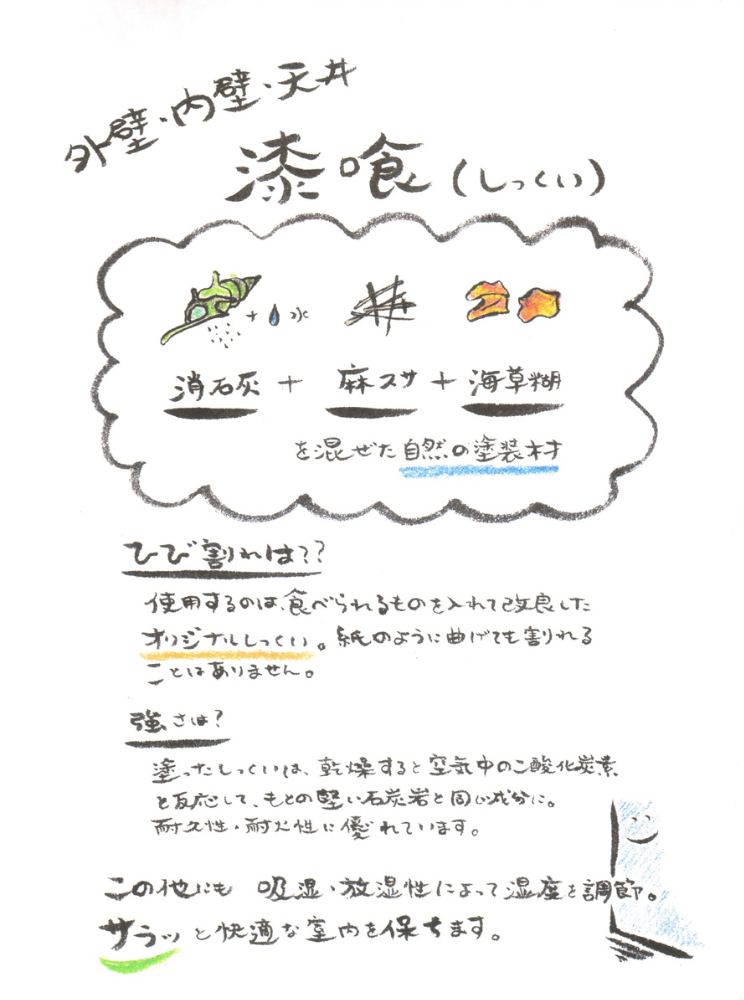 外壁・内壁・天井
漆喰(しっくい)
+ 水
消石灰 + 麻スサ + 海草糊
を混ぜた自然の塗装材
ひび割れは??
使用するのは、食べられるものを入れて改良した
オリジナルしっくい。紙のように曲げても割れる
ことはありません。
強さは?
塗ったしっくいは、乾燥すると空気中の二酸化炭素
と反応して、もとの堅い石炭岩と同じ成分に。
耐久性・耐火性に優れています。
この他にも 吸湿・放湿性によって湿度を調節。
サラッと快適な室内を保ちます。